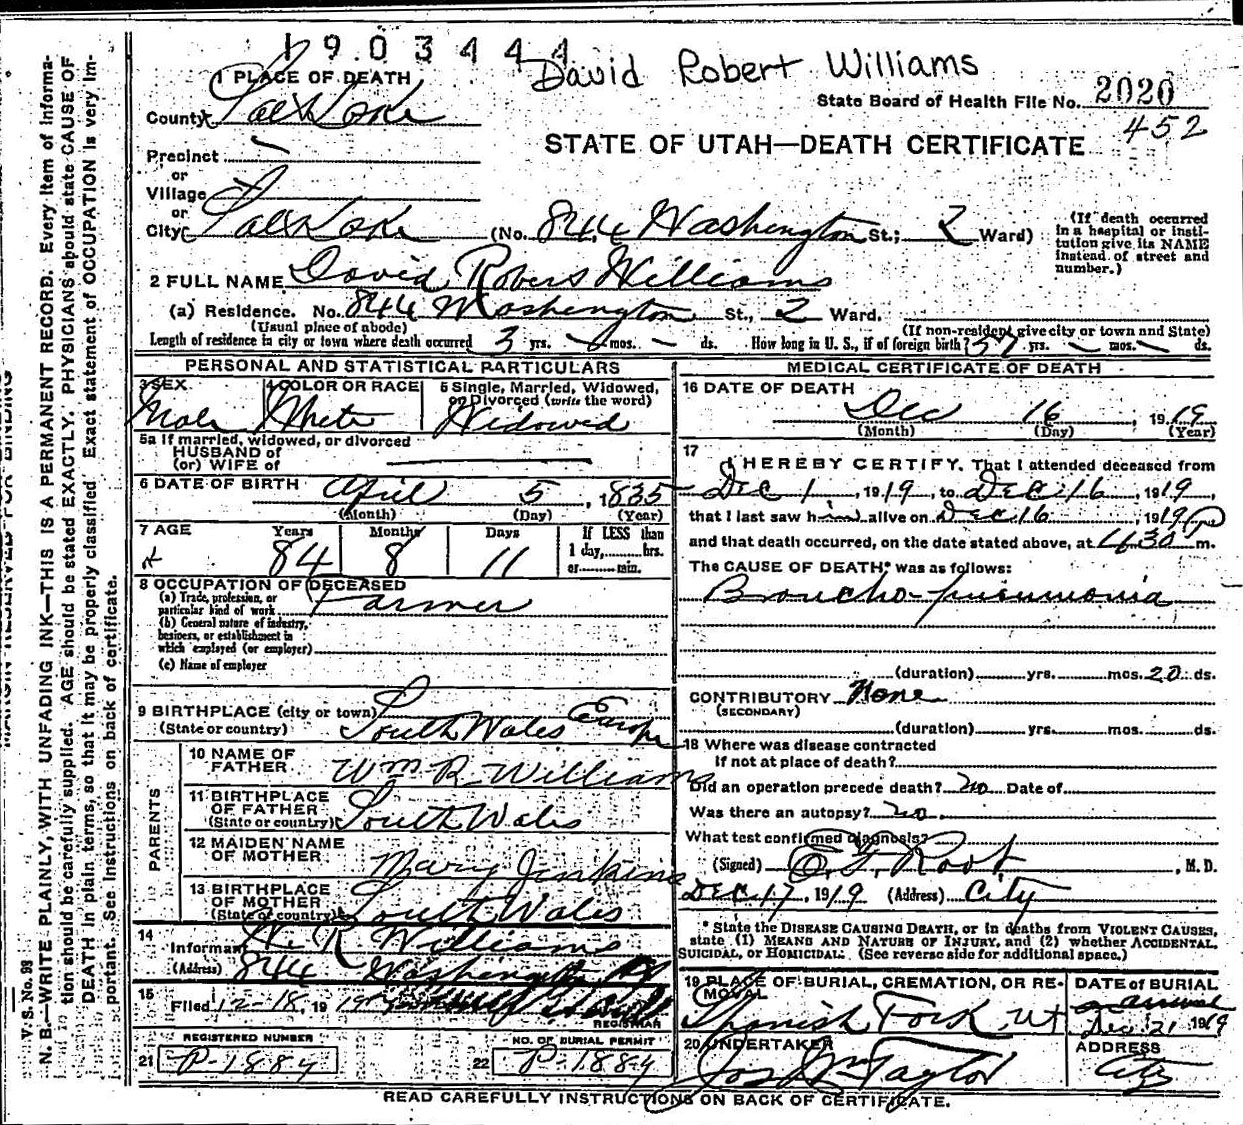 1903444
David Robert Williams
1 PLACE OF DEATH
State Board of Health File No. 2020
County Salt Lake
452
STATE OF UTAH—DEATH CERTIFICATE
Precinct
or
Village
or
City Salt Lake (No. 844 Washington St.; 2 Ward)
(If death occurred in a hospital or institution give its NAME instead of street and number.)
2 FULL NAME David Robert Williams
(a) Residence. No. 844 Washington St., 2 Ward.
(Usual place of abode) (If non-resident give city or town and State)
Length of residence in city or town where death occurred 3 yrs. — mos. — ds. How long in U. S., if of foreign birth? yrs. — mos. — ds.
PERSONAL AND STATISTICAL PARTICULARS
3 SEX 4 COLOR OR RACE 5 Single, Married, Widowed, or Divorced (write the word)
Male White Widowed
5a If married, widowed, or divorced
HUSBAND of
(or) WIFE of
6 DATE OF BIRTH April 5, 1835
(Month) (Day) (Year)
7 AGE Years Months Days If LESS than
1 day,......hrs.
or......min.
84 8 11
8 OCCUPATION OF DECEASED
(a) Trade, profession, or
particular kind of work Farmer
(b) General nature of industry,
business, or establishment in
which employed (or employer)
(c) Name of employer
9 BIRTHPLACE (city or town)
(State or country) South Wales Europe
PARENTS
10 NAME OF
FATHER Wm R. Williams
11 BIRTHPLACE
OF FATHER
(State or country) South Wales
12 MAIDEN NAME
OF MOTHER Mary Jenkins
13 BIRTHPLACE
OF MOTHER
(State or country) South Wales
14
Informant W. R. Williams
(Address) 844 Washington
15
Filed 12-18, 1919
REGISTRAR
REGISTERED NUMBER
21 P-1884
NO. OF BURIAL PERMIT
22 P-1884
MEDICAL CERTIFICATE OF DEATH
16 DATE OF DEATH
Dec 16, 1919
(Month) (Day) (Year)
17
I HEREBY CERTIFY, That I attended deceased from
Dec 1, 1919, to Dec 16, 1919,
that I last saw him alive on Dec 16, 1919
and that death occurred, on the date stated above, at 4:30 P m.
The CAUSE OF DEATH* was as follows:
Broncho-pneumonia
(duration) yrs. mos. 20 ds.
CONTRIBUTORY None
(SECONDARY)
(duration) yrs. mos. ds.
18 Where was disease contracted
If not at place of death?
Did an operation precede death? no Date of
Was there an autopsy? no.
What test confirmed diagnosis?
(Signed) O. F. Root, M. D.
Dec 17, 1919 (Address) City
* State the DISEASE CAUSING DEATH, or in deaths from VIOLENT CAUSES,
state (1) MEANS AND NATURE OF INJURY, and (2) whether ACCIDENTAL,
SUICIDAL, or HOMICIDAL. (See reverse side for additional space.)
19 PLACE OF BURIAL, CREMATION, OR REMOVAL
Spanish Fork Ut
DATE OF BURIAL
Dec 21 1919
20 UNDERTAKER
Jos Wm Taylor
ADDRESS
City
READ CAREFULLY INSTRUCTIONS ON BACK OF CERTIFICATE.
MARGIN RESERVED FOR BINDING
V. S. No. 99
N. B.—WRITE PLAINLY, WITH UNFADING INK—THIS IS A PERMANENT RECORD. Every item of information should be carefully supplied. AGE should be stated EXACTLY. PHYSICIANS should state CAUSE OF DEATH in plain terms, so that it may be properly classified. Exact statement of OCCUPATION is very important. See instructions on back of certificate.